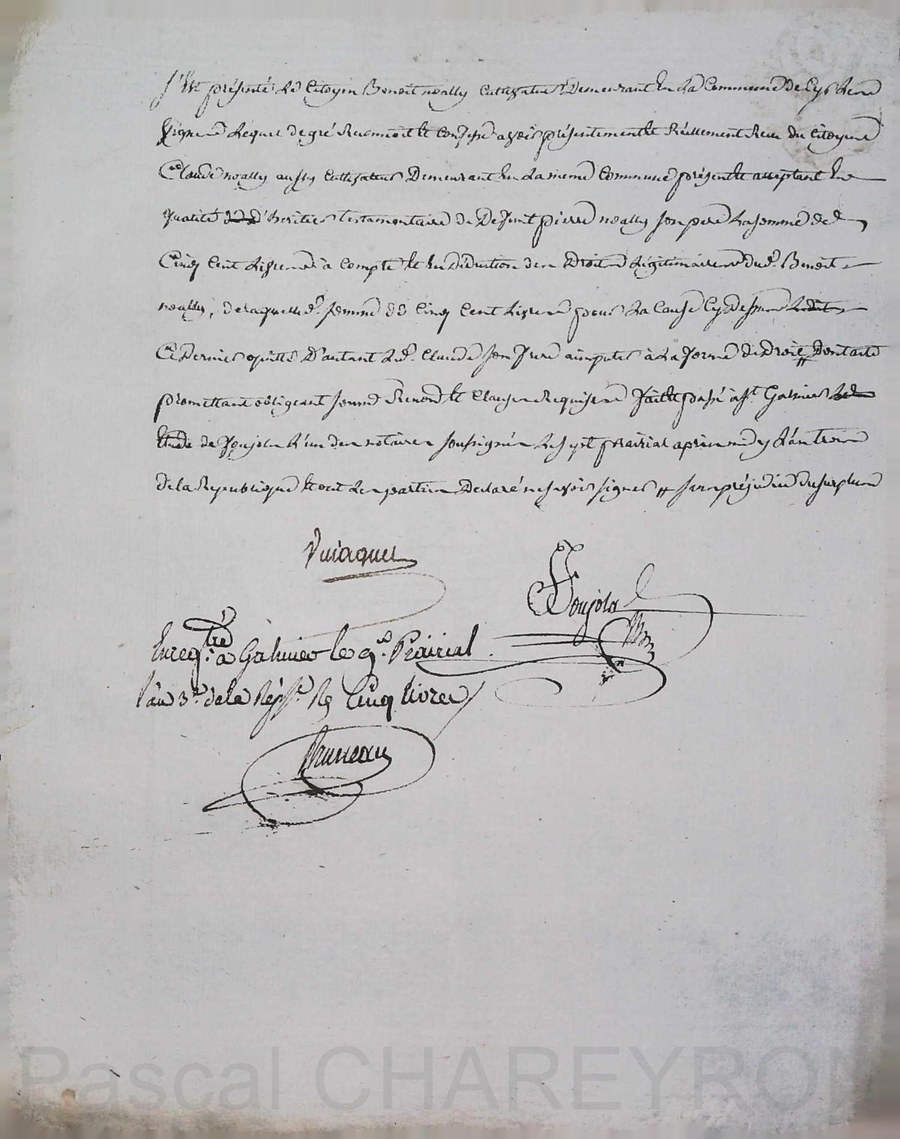 S'est présenté le Citoyen Benoit noally Cultivateur Demeurant En La Commune de
Lequel de gré Reconnoit et Confesse avoir présentement et Réellement Reçu du Citoyen
Claude noally aussy Cultivateur Demeurant En La meme Commune présent et acceptant En
qualité d'heritier testamentaire de Defunt pierre noally son pere La somme de
Cinq Cent Livres à Compte et En Deduction des Droits Légitimaires dud. Benoit
noally, de laquelle d. somme de Cinq Cent Livres pour La Cause Cy Dessus
Ce Dernier quitte D'autant Led. Claude son frere a imputer à La forme de Droit, Dont acte
promettant obligeant soumis Renoncé et Clauses Requises fait et passé à St Galmier
étude de Poujola L'un des notaires soussignés Le sept prairial après midy L'an trois
de la Republique et ont Les parties Declaré ne savoir signer // sans préjudice du surplus
Poujola
Enregtré à Galmier le 9e. Prairial
l'an 3e. de la Répe. R. Cinq Livres
Bruneau
Pascal CHAREYRON